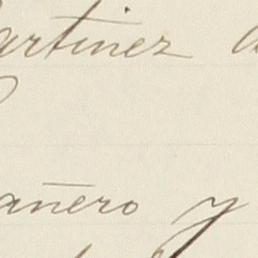 artinez
añero y